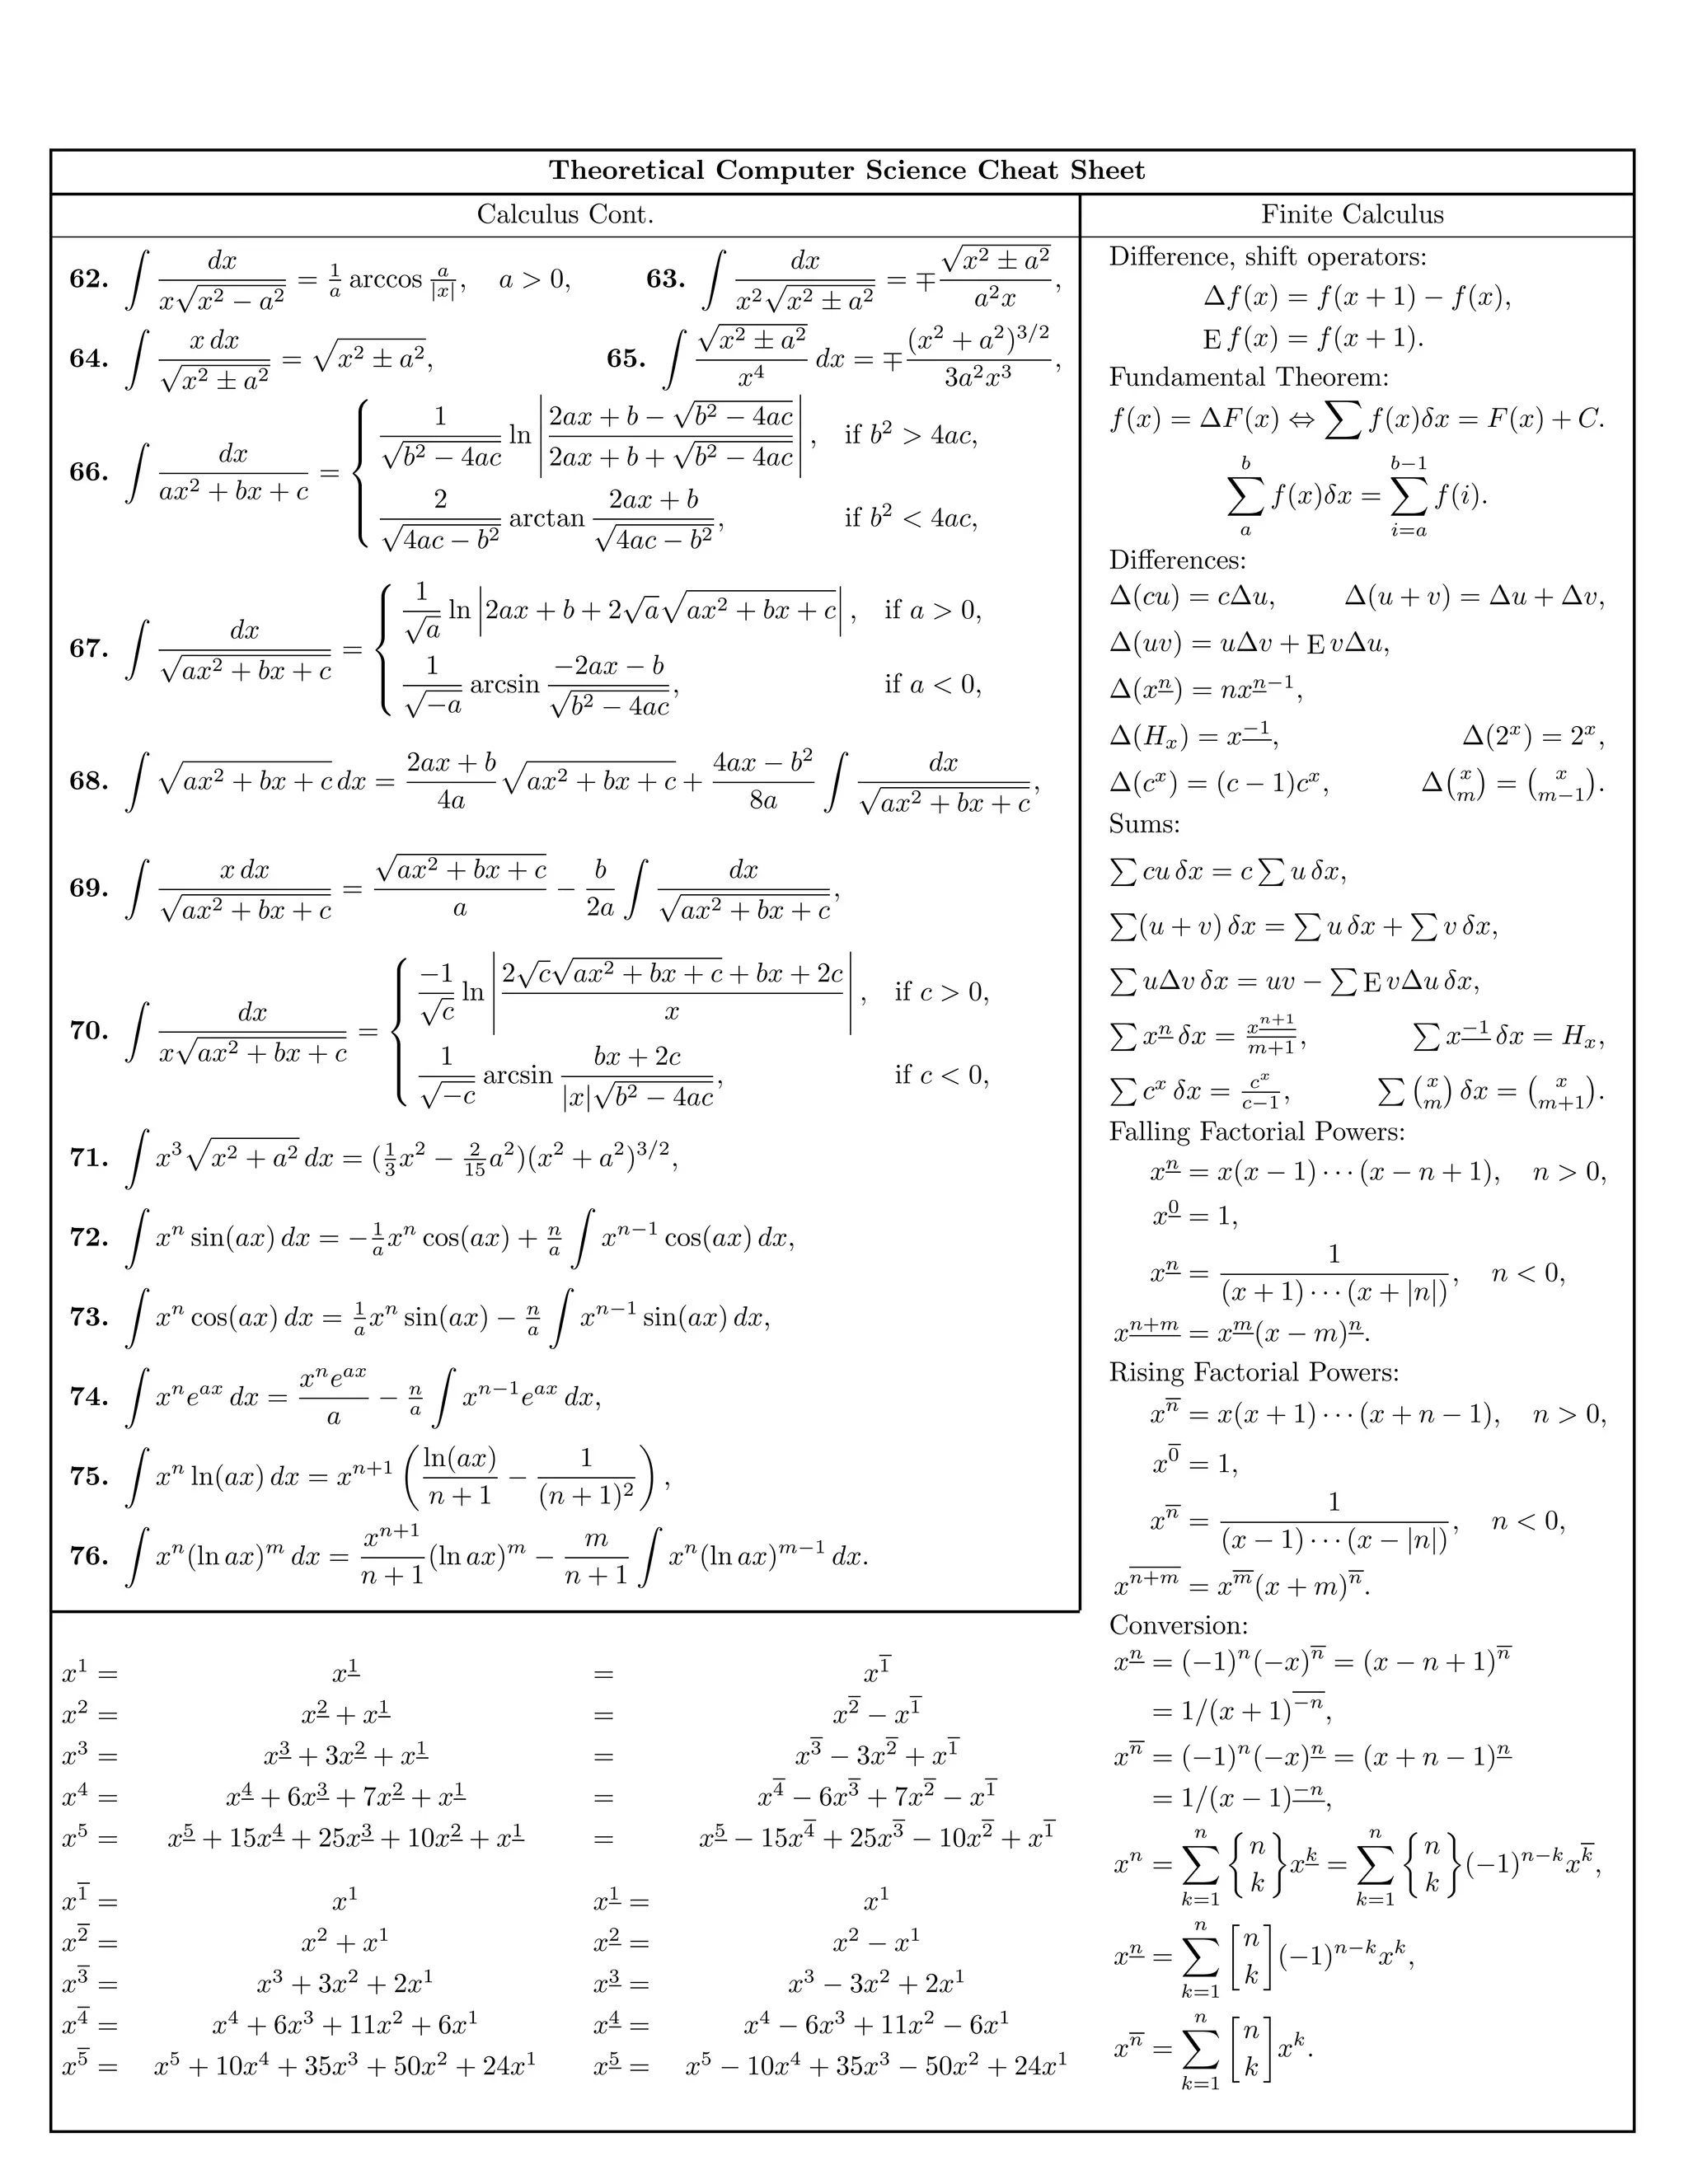 Theoretical Computer Science Cheat Sheet
Calculus Cont.
62. ∫ dx / (x√(x² − a²)) = (1/a) arccos (a/|x|), a > 0, 63. ∫ dx / (x²√(x² ± a²)) = ∓ √(x² ± a²) / (a²x),
64. ∫ x dx / √(x² ± a²) = √(x² ± a²), 65. ∫ (√(x² ± a²) / x⁴) dx = ∓ (x² + a²)^{3/2} / (3a²x³),
66. ∫ dx / (ax² + bx + c) = { (1/√(b² − 4ac)) ln |(2ax + b − √(b² − 4ac)) / (2ax + b + √(b² − 4ac))|, if b² > 4ac,
(2/√(4ac − b²)) arctan ((2ax + b)/√(4ac − b²)), if b² < 4ac,
67. ∫ dx / √(ax² + bx + c) = { (1/√a) ln |2ax + b + 2√a√(ax² + bx + c)|, if a > 0,
(1/√(−a)) arcsin ((−2ax − b)/√(b² − 4ac)), if a < 0,
68. ∫ √(ax² + bx + c) dx = ((2ax + b)/4a) √(ax² + bx + c) + ((4ax − b²)/8a) ∫ dx / √(ax² + bx + c),
69. ∫ x dx / √(ax² + bx + c) = √(ax² + bx + c) / a − (b/2a) ∫ dx / √(ax² + bx + c),
70. ∫ dx / (x√(ax² + bx + c)) = { (−1/√c) ln |(2√c√(ax² + bx + c) + bx + 2c) / x|, if c > 0,
(1/√(−c)) arcsin ((bx + 2c)/(|x|√(b² − 4ac))), if c < 0,
71. ∫ x³√(x² + a²) dx = (⅓x² − (2/15)a²)(x² + a²)^{3/2},
72. ∫ xⁿ sin(ax) dx = −(1/a)xⁿ cos(ax) + (n/a) ∫ x^{n−1} cos(ax) dx,
73. ∫ xⁿ cos(ax) dx = (1/a)xⁿ sin(ax) − (n/a) ∫ x^{n−1} sin(ax) dx,
74. ∫ xⁿe^{ax} dx = xⁿe^{ax}/a − (n/a) ∫ x^{n−1}e^{ax} dx,
75. ∫ xⁿ ln(ax) dx = x^{n+1} (ln(ax)/(n + 1) − 1/(n + 1)²),
76. ∫ xⁿ(ln ax)^m dx = (x^{n+1}/(n + 1))(ln ax)^m − (m/(n + 1)) ∫ xⁿ(ln ax)^{m−1} dx.
x¹ = x^{\underline{1}} = x^{\overline{1}}
x² = x^{\underline{2}} + x^{\underline{1}} = x^{\overline{2}} − x^{\overline{1}}
x³ = x^{\underline{3}} + 3x^{\underline{2}} + x^{\underline{1}} = x^{\overline{3}} − 3x^{\overline{2}} + x^{\overline{1}}
x⁴ = x^{\underline{4}} + 6x^{\underline{3}} + 7x^{\underline{2}} + x^{\underline{1}} = x^{\overline{4}} − 6x^{\overline{3}} + 7x^{\overline{2}} − x^{\overline{1}}
x⁵ = x^{\underline{5}} + 15x^{\underline{4}} + 25x^{\underline{3}} + 10x^{\underline{2}} + x^{\underline{1}} = x^{\overline{5}} − 15x^{\overline{4}} + 25x^{\overline{3}} − 10x^{\overline{2}} + x^{\overline{1}}
x^{\overline{1}} = x¹ x^{\underline{1}} = x¹
x^{\overline{2}} = x² + x¹ x^{\underline{2}} = x² − x¹
x^{\overline{3}} = x³ + 3x² + 2x¹ x^{\underline{3}} = x³ − 3x² + 2x¹
x^{\overline{4}} = x⁴ + 6x³ + 11x² + 6x¹ x^{\underline{4}} = x⁴ − 6x³ + 11x² − 6x¹
x^{\overline{5}} = x⁵ + 10x⁴ + 35x³ + 50x² + 24x¹ x^{\underline{5}} = x⁵ − 10x⁴ + 35x³ − 50x² + 24x¹
Finite Calculus
Difference, shift operators:
Δf(x) = f(x + 1) − f(x),
E f(x) = f(x + 1).
Fundamental Theorem:
f(x) = ΔF(x) ⇔ ∑ f(x)δx = F(x) + C.
∑_{a}^{b} f(x)δx = ∑_{i=a}^{b−1} f(i).
Differences:
Δ(cu) = cΔu, Δ(u + v) = Δu + Δv,
Δ(uv) = uΔv + E vΔu,
Δ(x^{\underline{n}}) = nx^{\underline{n}−1},
Δ(H_x) = x^{\underline{−1}}, Δ(2^x) = 2^x,
Δ(c^x) = (c − 1)c^x, Δ\binom{x}{m} = \binom{x}{m−1}.
Sums:
∑ cu δx = c ∑ u δx,
∑(u + v) δx = ∑ u δx + ∑ v δx,
∑ uΔv δx = uv − ∑ E vΔu δx,
∑ x^{\underline{n}} δx = x^{\underline{n+1}}/(m+1), ∑ x^{\underline{−1}} δx = H_x,
∑ c^x δx = c^x/(c−1), ∑ \binom{x}{m} δx = \binom{x}{m+1}.
Falling Factorial Powers:
x^{\underline{n}} = x(x − 1) ··· (x − n + 1), n > 0,
x^{\underline{0}} = 1,
x^{\underline{n}} = 1 / ((x + 1) ··· (x + |n|)), n < 0,
x^{\underline{n+m}} = x^{\underline{m}}(x − m)^{\underline{n}}.
Rising Factorial Powers:
x^{\overline{n}} = x(x + 1) ··· (x + n − 1), n > 0,
x^{\overline{0}} = 1,
x^{\overline{n}} = 1 / ((x − 1) ··· (x − |n|)), n < 0,
x^{\overline{n+m}} = x^{\overline{m}}(x + m)^{\overline{n}}.
Conversion:
x^{\underline{n}} = (−1)ⁿ(−x)^{\overline{n}} = (x − n + 1)^{\overline{n}}
= 1/(x + 1)^{\overline{−n}},
x^{\overline{n}} = (−1)ⁿ(−x)^{\underline{n}} = (x + n − 1)^{\underline{n}}
= 1/(x − 1)^{\underline{−n}},
xⁿ = ∑_{k=1}^{n} {n \brace k} x^{\underline{k}} = ∑_{k=1}^{n} {n \brace k} (−1)^{n−k}x^{\overline{k}},
x^{\underline{n}} = ∑_{k=1}^{n} {n \brack k} (−1)^{n−k}x^k,
x^{\overline{n}} = ∑_{k=1}^{n} {n \brack k} x^k.